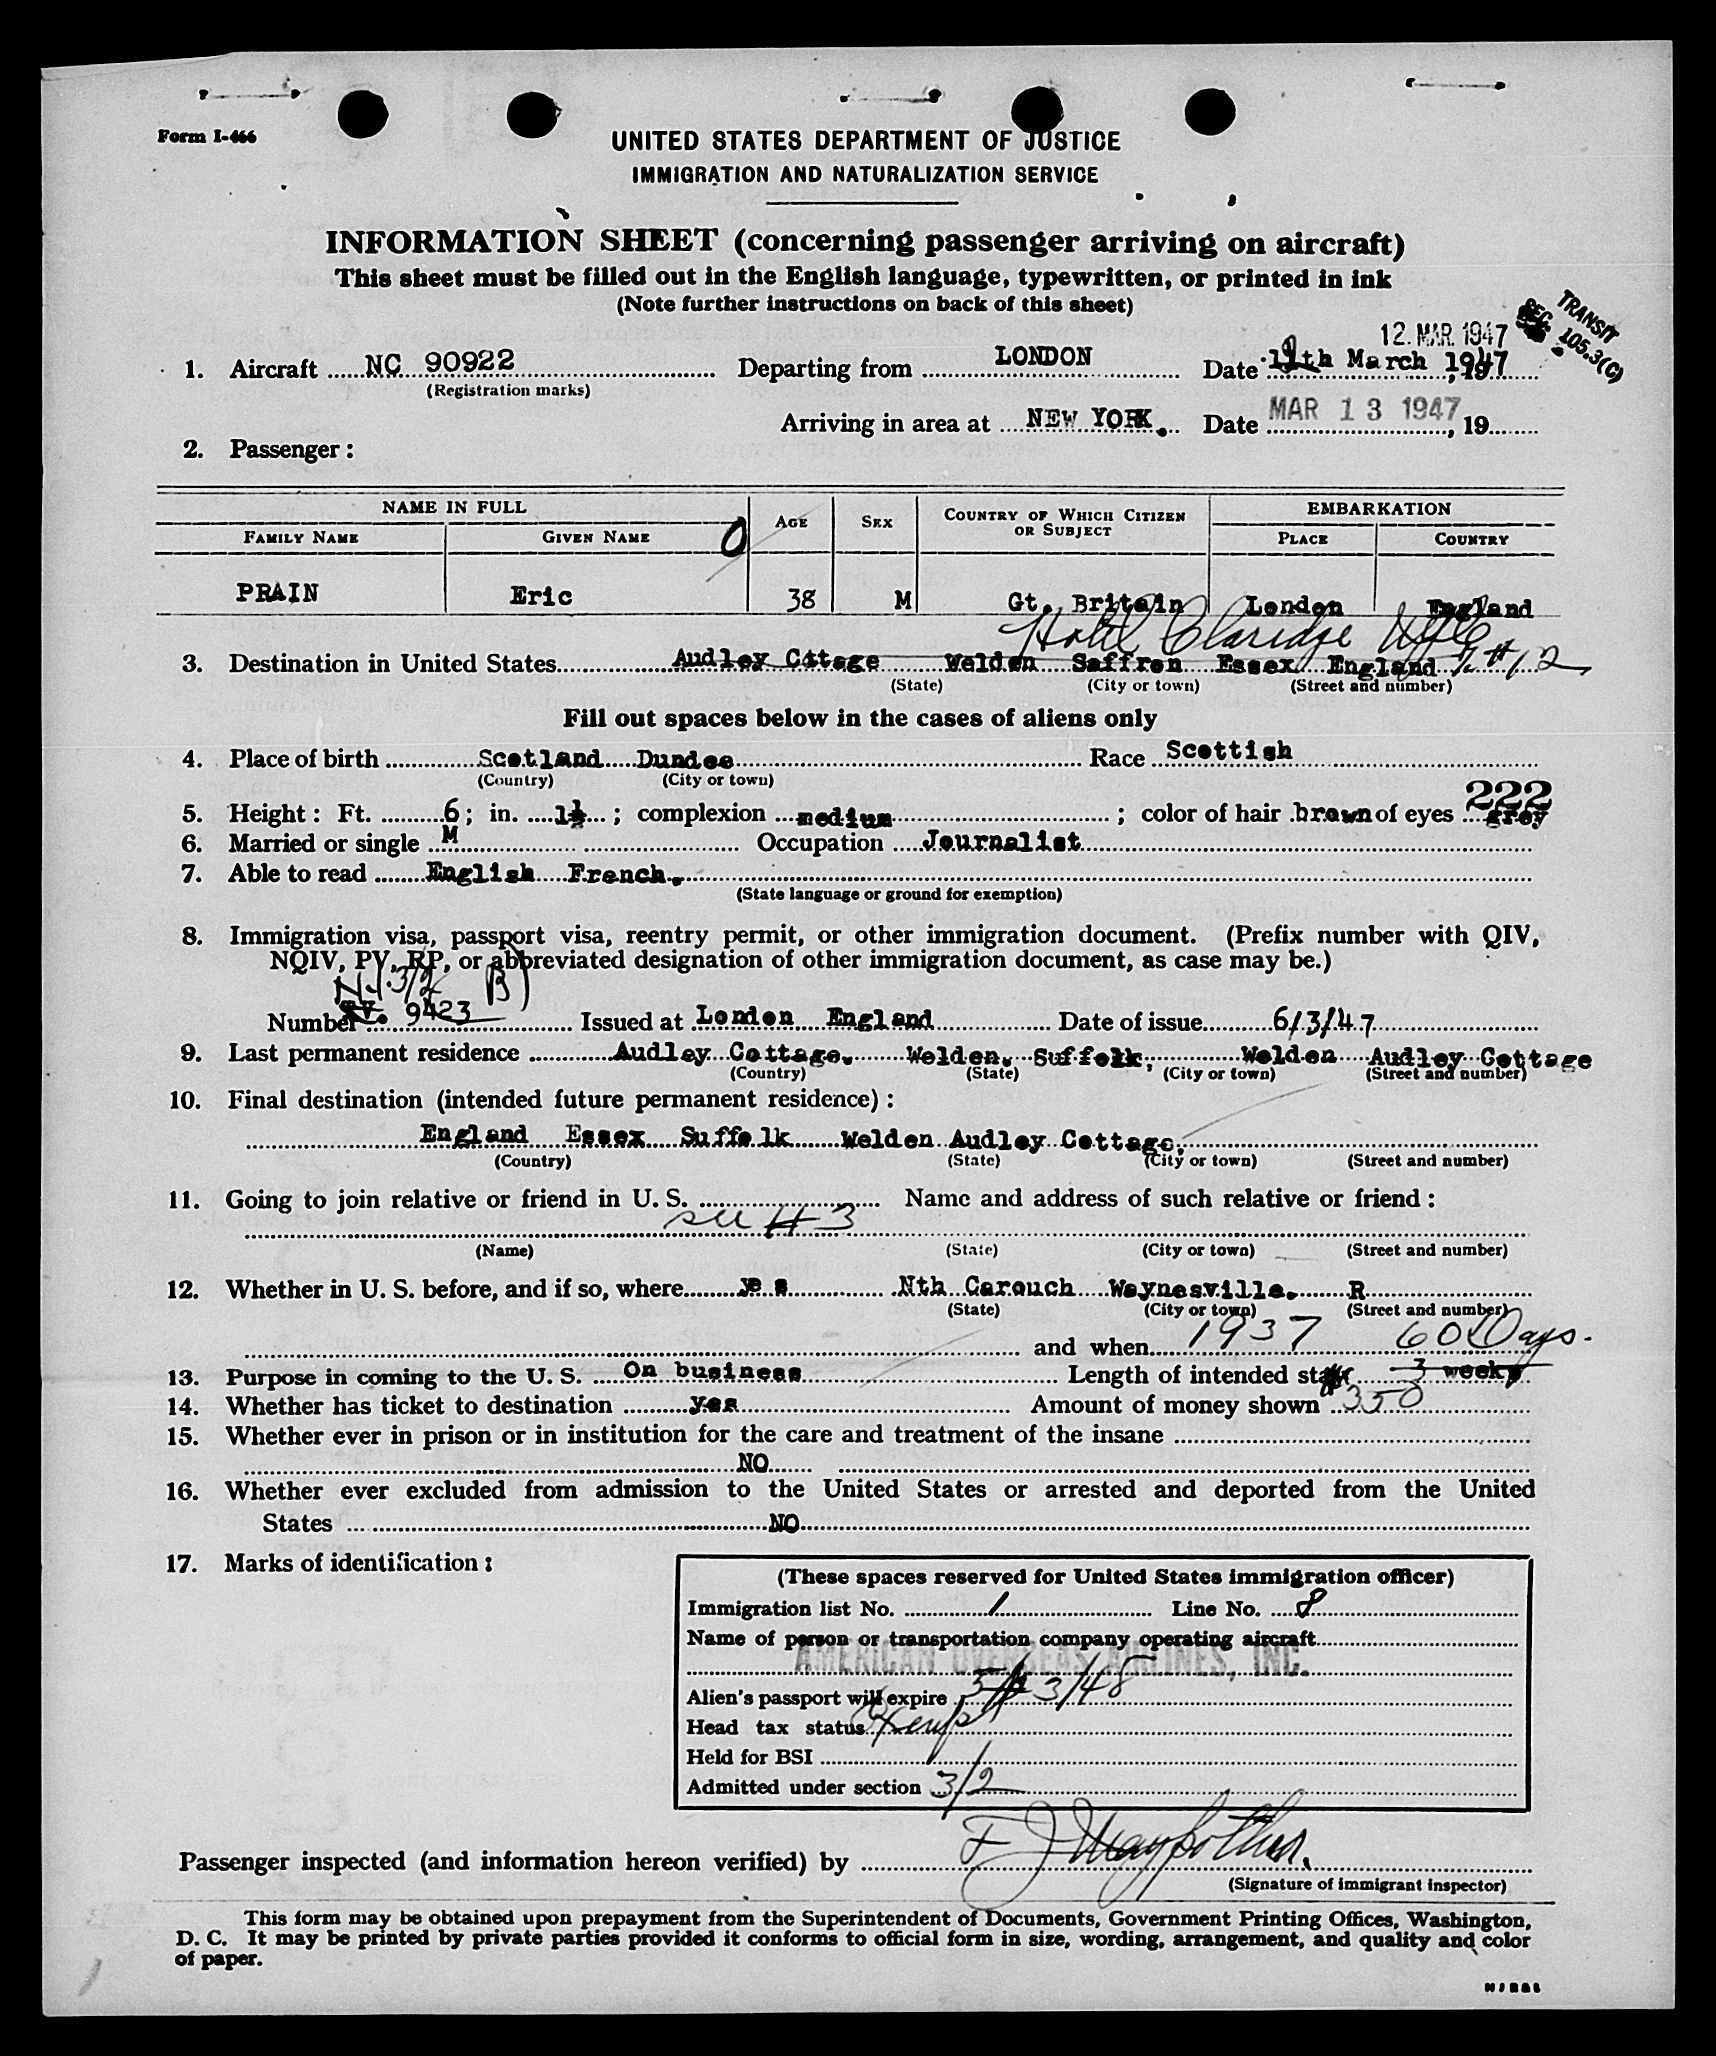 Form I-466
UNITED STATES DEPARTMENT OF JUSTICE
IMMIGRATION AND NATURALIZATION SERVICE
INFORMATION SHEET (concerning passenger arriving on aircraft)
This sheet must be filled out in the English language, typewritten, or printed in ink
(Note further instructions on back of this sheet)
TRANSIT
SEC. 105.3(C)
12. MAR. 1947
1. Aircraft NC 90922 Departing from LONDON Date 11th March 1947, 19
(Registration marks)
Arriving in area at NEW YORK. Date MAR 13 1947, 19
2. Passenger:
NAME IN FULL AGE SEX COUNTRY OF WHICH CITIZEN OR SUBJECT EMBARKATION
FAMILY NAME GIVEN NAME PLACE COUNTRY
PRAIN Eric 38 M Gt. Britain London England
Hotel Claridge NYC
3. Destination in United States Audley Cttage Welden Saffron Essex England # 12
(State) (City or town) (Street and number)
Fill out spaces below in the cases of aliens only
4. Place of birth Scotland Dundee Race Scottish
(Country) (City or town)
222
5. Height: Ft. 6; in. 1½; complexion medium; color of hair brown of eyes grey
6. Married or single M Occupation Journalist
7. Able to read English French.
(State language or ground for exemption)
8. Immigration visa, passport visa, reentry permit, or other immigration document. (Prefix number with QIV,
NQIV, PV, RP, or abbreviated designation of other immigration document, as case may be.)
3/2 B)
Number 9423 Issued at London England Date of issue 6/3/47
9. Last permanent residence Audley Cottage. Welden. Suffolk, Welden Audley Cottage
(Country) (State) (City or town) (Street and number)
10. Final destination (intended future permanent residence):
England Essex Suffolk Welden Audley Cottage,
(Country) (State) (City or town) (Street and number)
11. Going to join relative or friend in U. S. Name and address of such relative or friend:
see # 3
(Name) (State) (City or town) (Street and number)
12. Whether in U. S. before, and if so, where yes Nth Carouch Waynesville. R
(State) (City or town) (Street and number)
and when 1937 60 Days.
13. Purpose in coming to the U. S. On business Length of intended stay 3 weeks
14. Whether has ticket to destination yes Amount of money shown 350
15. Whether ever in prison or in institution for the care and treatment of the insane
NO
16. Whether ever excluded from admission to the United States or arrested and deported from the United
States NO
17. Marks of identification:
(These spaces reserved for United States immigration officer)
Immigration list No. 1 Line No. 8
Name of person or transportation company operating aircraft
AMERICAN OVERSEAS AIRLINES, INC.
Alien's passport will expire 3/48
Head tax status Exempt
Held for BSI
Admitted under section 3/2
Passenger inspected (and information hereon verified) by
(Signature of immigrant inspector)
This form may be obtained upon prepayment from the Superintendent of Documents, Government Printing Offices, Washington,
D. C. It may be printed by private parties provided it conforms to official form in size, wording, arrangement, and quality and color
of paper.